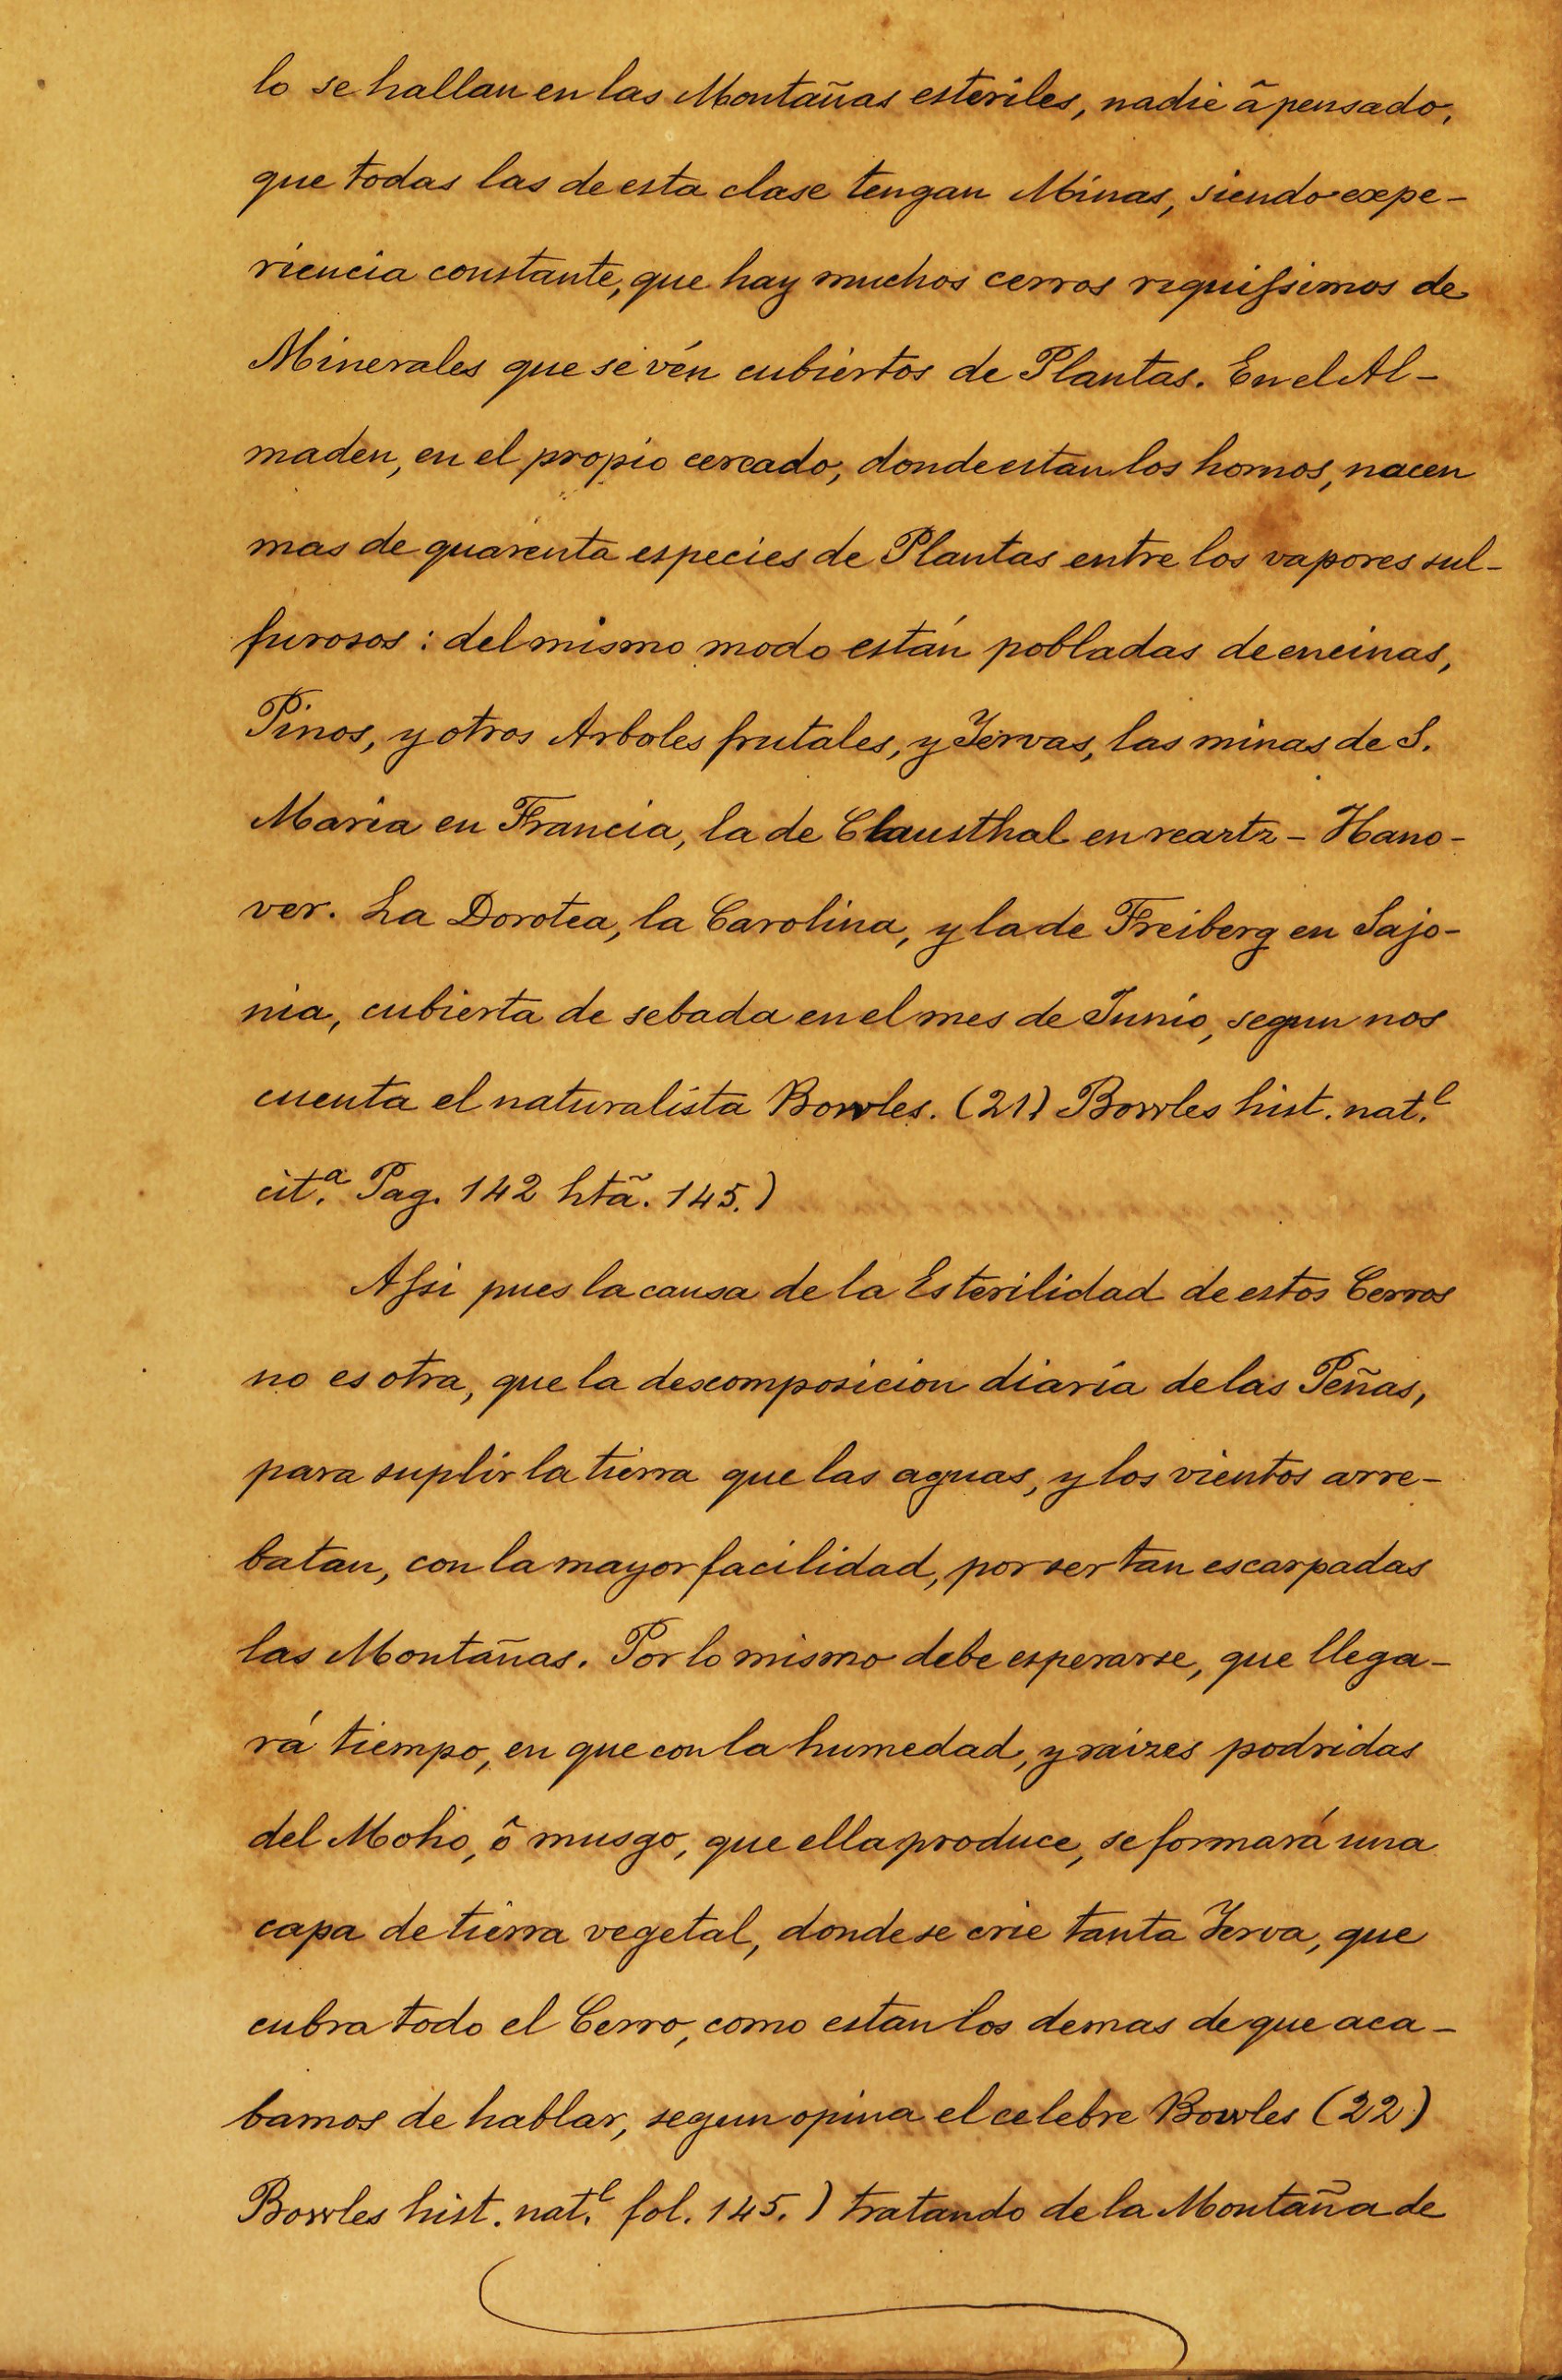 lo se hallan en las Montañas esteriles, nadie â pensado,
que todas las de esta clase tengan Minas, siendo expe-
riencia constante, que hay muchos cerros riquissimos de
Minerales que se vén cubiertos de Plantas. En el Al-
maden, en el propio cercado, donde estan los hornos, nacen
mas de quarenta especies de Plantas entre los vapores sul-
furosos: del mismo modo están pobladas de encinas,
Pinos, y otros Arboles frutales, y Yervas, las minas de S.
Maria en Francia, la de Clausthal en reartz - Hano-
ver. La Dorotea, la Carolina, y la de Freiberg en Sajo-
nia, cubierta de sebada en el mes de Junio, segun nos
cuenta el naturalista Bowles. (21) Bowles hist. nat.l
cit.a Pag. 142 htã. 145.)
Assi pues la causa de la Esterilidad de estos Cerros
no es otra, que la descomposicion diaria de las Peñas,
para suplir la tierra que las aguas, y los vientos arre-
batan, con la mayor facilidad, por ser tan escarpadas
las Montañas. Por lo mismo debe esperarse, que llega-
rá tiempo, en que con la humedad, y raizes podridas
del Moho, ô musgo, que ella produce, se formará una
capa de tierra vegetal, donde se crie tanta Yerva, que
cubra todo el Cerro, como estan los demas de que aca-
bamos de hablar, segun opina el celebre Bowles (22)
Bowles hist. nat.l fol. 145.) tratando de la Montaña de